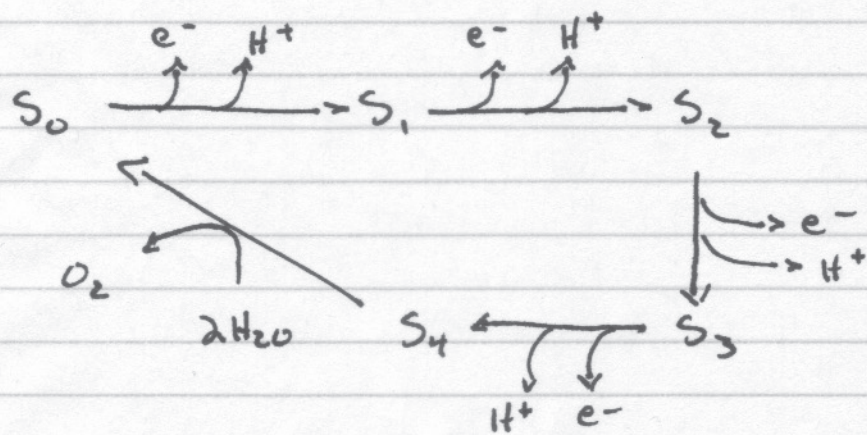 e⁻ H⁺ e⁻ H⁺
S₀ S₁ S₂
e⁻
H⁺
O₂
2H₂O S₄ S₃
H⁺ e⁻